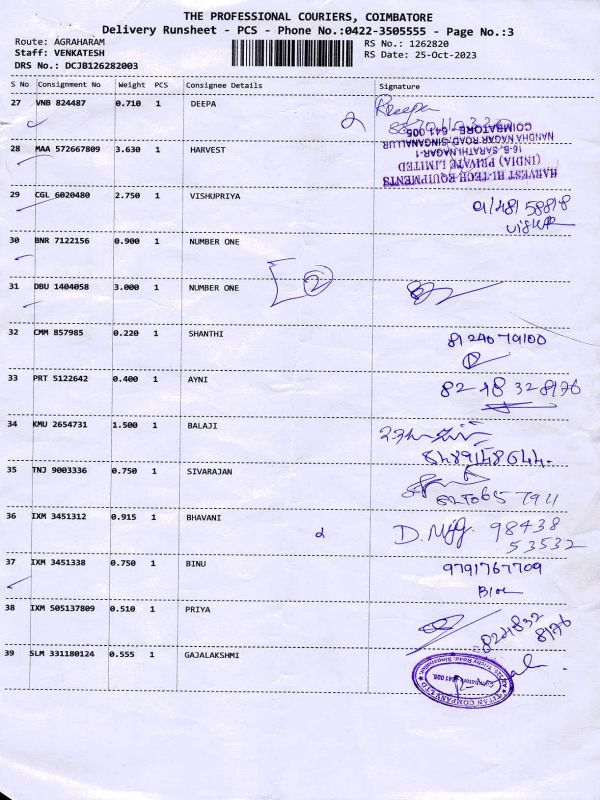 THE PROFESSIONAL COURIERS, COIMBATORE
Delivery Runsheet - PCS - Phone No.:0422-3505555 - Page No.:3
Route: AGRAHARAM RS No.: 1262820
Staff: VENKATESH RS Date: 25-Oct-2023
DRS No.: DCJB126282003
S No Consignment No Weight PCS Consignee Details Signature
27 VNB 824487 0.710 1 DEEPA
2 Deepa
28 MAA 572667809 3.630 1 HARVEST
HARVEST HI-TECH EQUIPMENTS
(INDIA) PRIVATE LIMITED
16-B, SARATHI NAGAR-1
NANDHA NAGAR ROAD, SINGANALLUR
COIMBATORE - 641 005
29 CGL 6020480 2.750 1 VISHUPRIYA
30 BNR 7122156 0.900 1 NUMBER ONE
31 DBU 1404058 3.000 1 NUMBER ONE
2
32 CMM 857985 0.220 1 SHANTHI
8124079100
33 PRT 5122642 0.400 1 AYNI
82 48 328176
34 KMU 2654731 1.500 1 BALAJI
8489148644
35 TNJ 9003336 0.750 1 SIVARAJAN
36 IXM 3451312 0.915 1 BHAVANI
98438
53532
37 IXM 3451338 0.750 1 BINU
9791767709
38 IXM 505137809 0.510 1 PRIYA
39 SLM 331180124 0.555 1 GAJALAKSHMI
TITAN COMPANY LTD